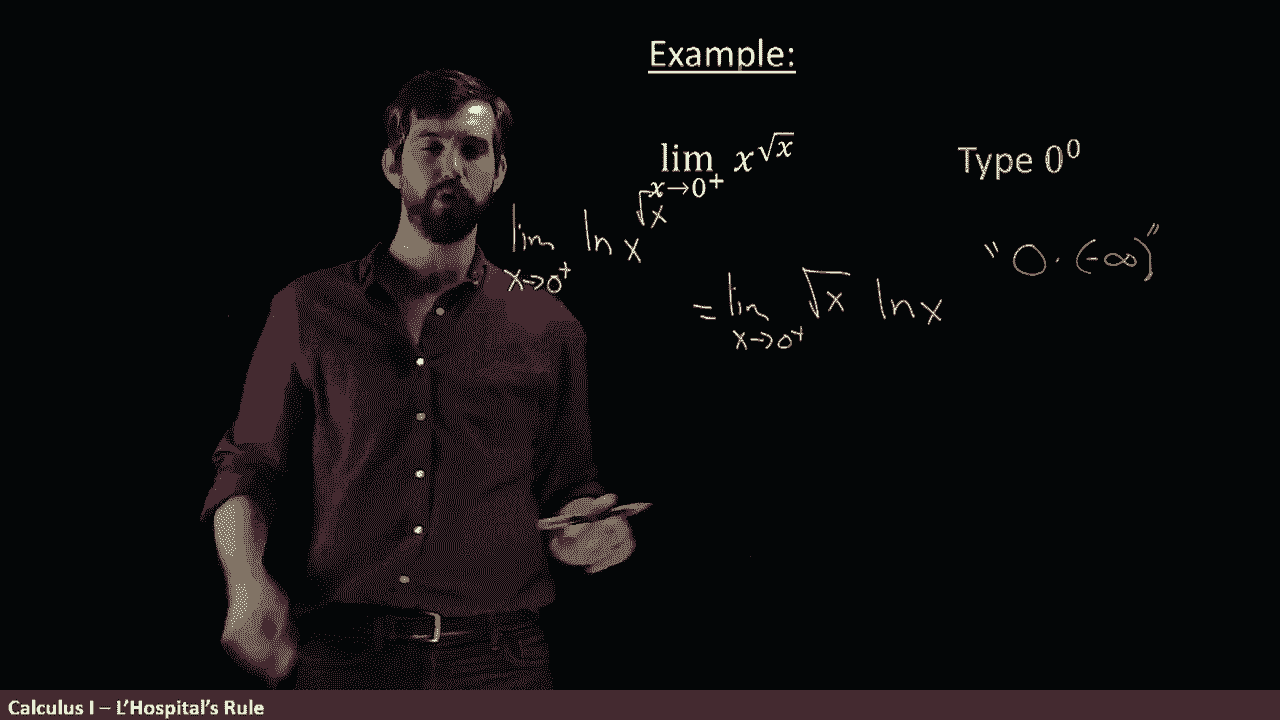 Example:
lim x→0⁺ x^√x
Type 0⁰
lim x→0⁺ ln x^√x
"0·(-∞)"
= lim x→0⁺ √x ln x
Calculus I – L'Hospital's Rule